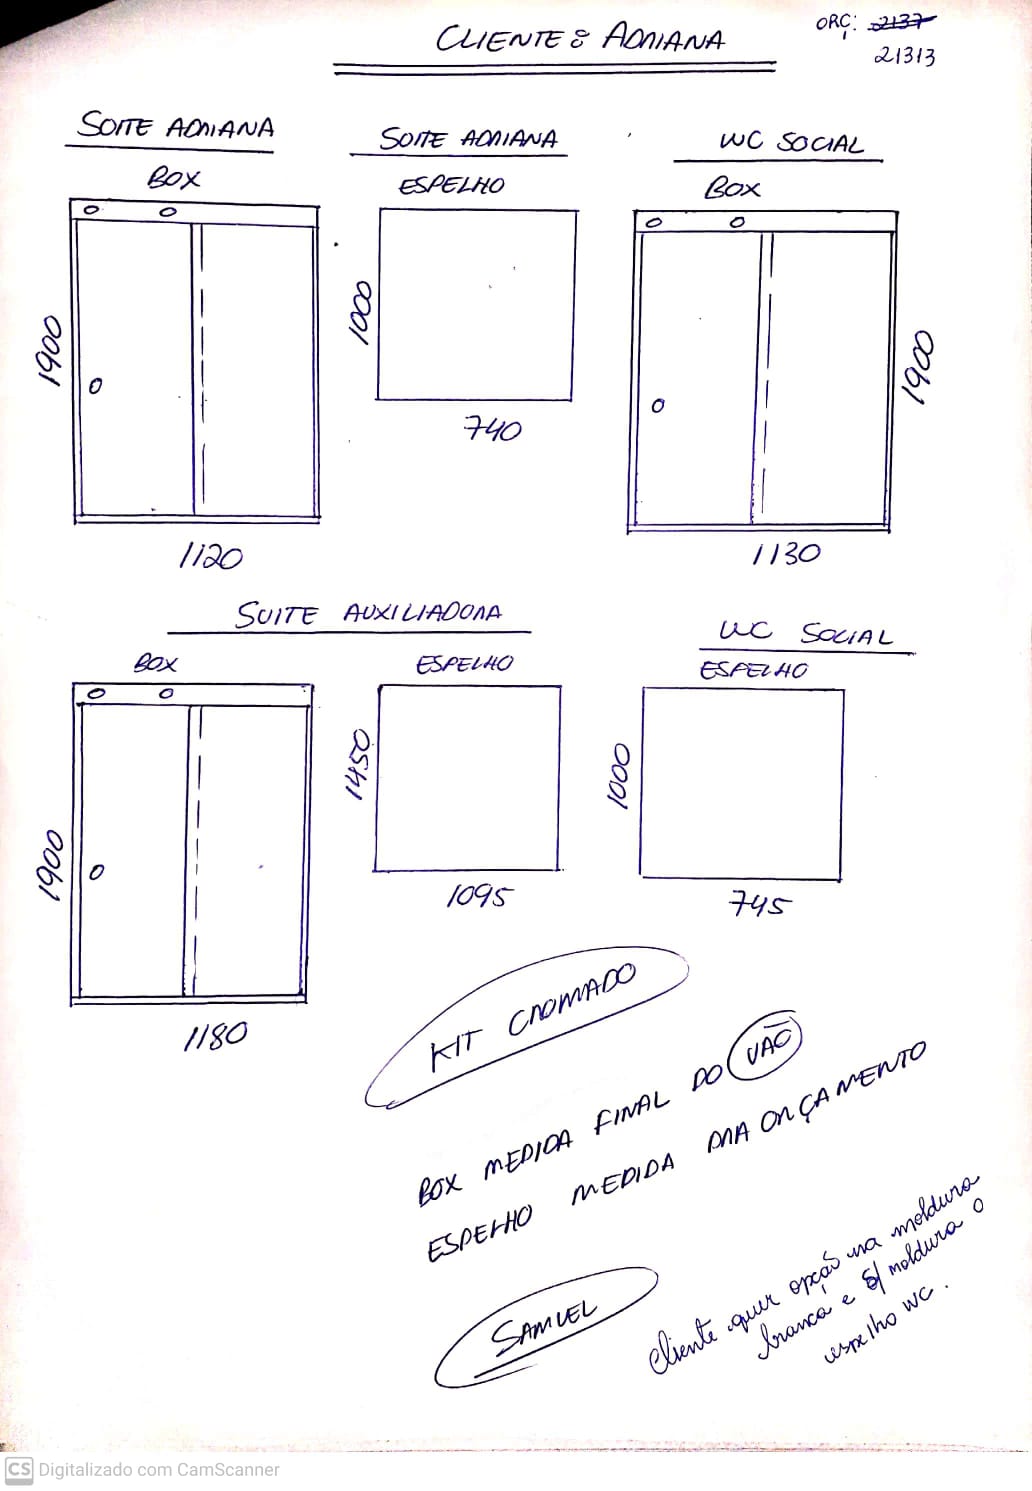 CLIENTE: ADRIANA
ORÇ: 2137
21313
SUITE ADRIANA
BOX
1900
1120
SUITE ADRIANA
ESPELHO
1000
740
WC SOCIAL
BOX
1900
1130
SUITE AUXILIADORA
BOX
1900
1180
ESPELHO
1450
1095
WC SOCIAL
ESPELHO
1000
745
KIT CROMADO
BOX MEDIDA FINAL DO VÃO
ESPELHO MEDIDA PRA ORÇAMENTO
SAMUEL
Cliente quer opção na moldura
branca e s/ moldura o
espelho WC.
CS Digitalizado com CamScanner